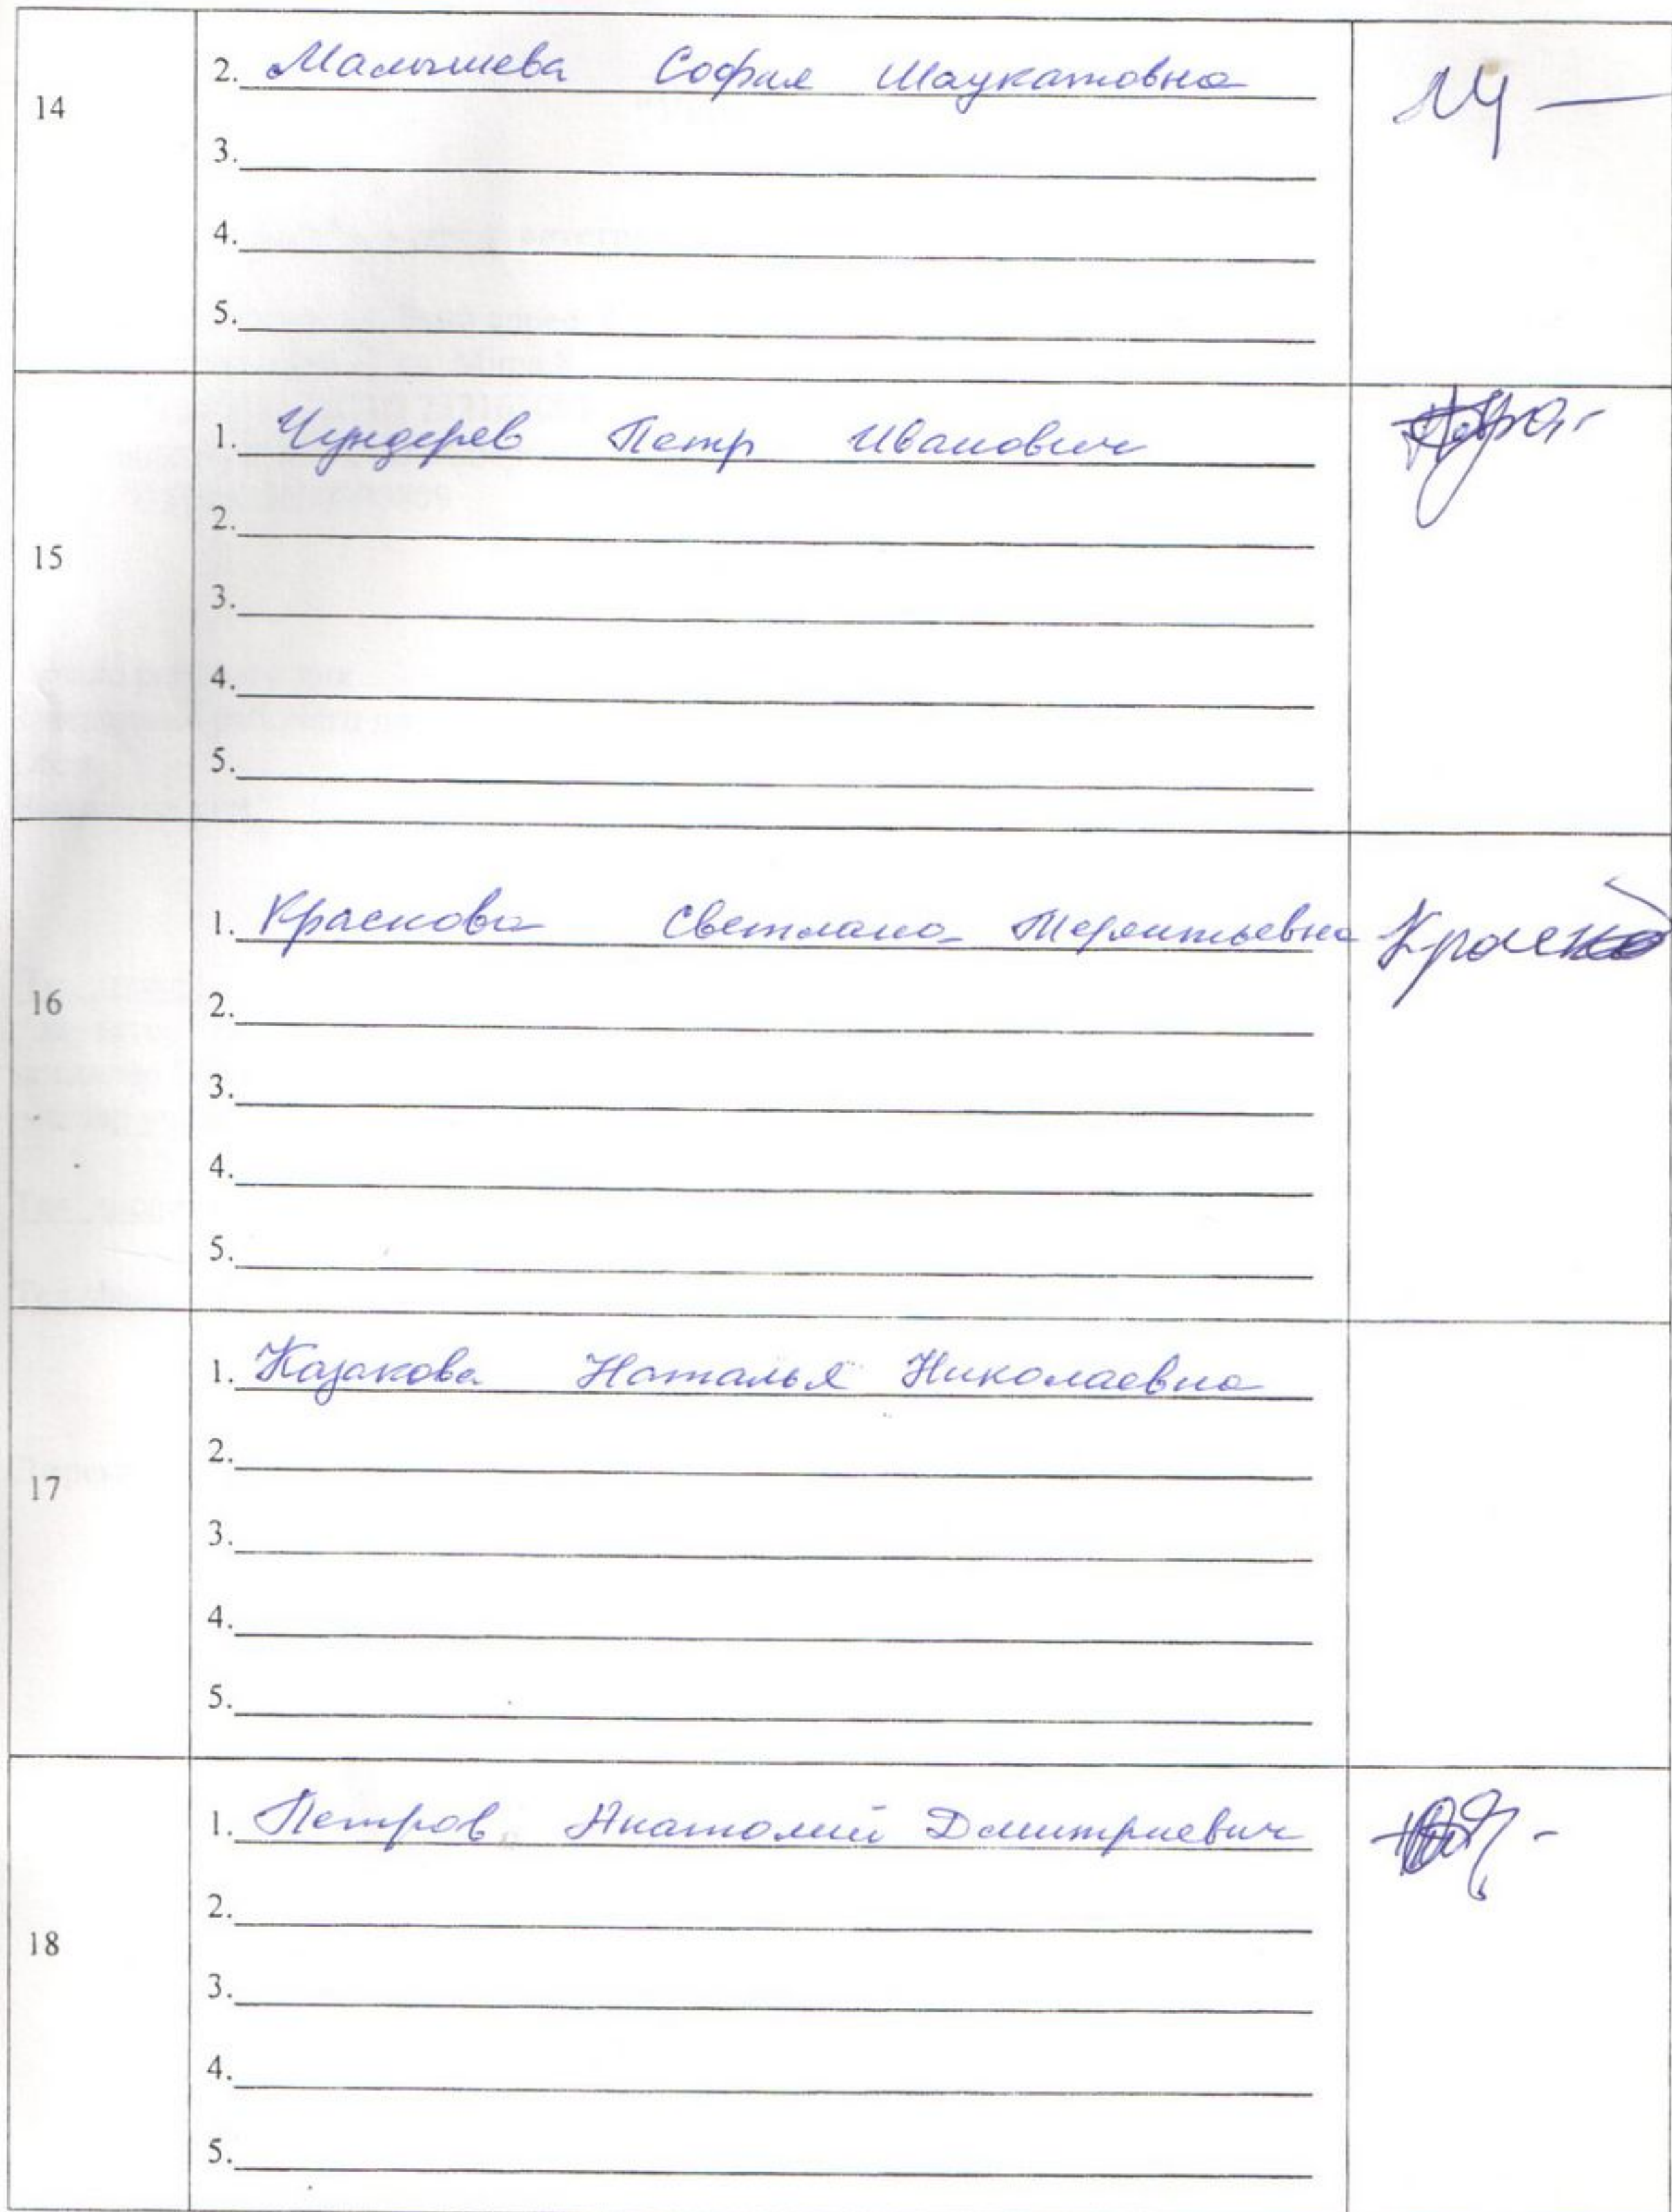 14
2. Малышева София Шаукатовна
3.
4.
5.
15
1. Чундерев Петр Иванович
2.
3.
4.
5.
16
1. Краснова Светлана Терентьевна
2.
3.
4.
5.
17
1. Казакова Наталья Николаевна
2.
3.
4.
5.
18
1. Петров Анатолий Дмитриевич
2.
3.
4.
5.